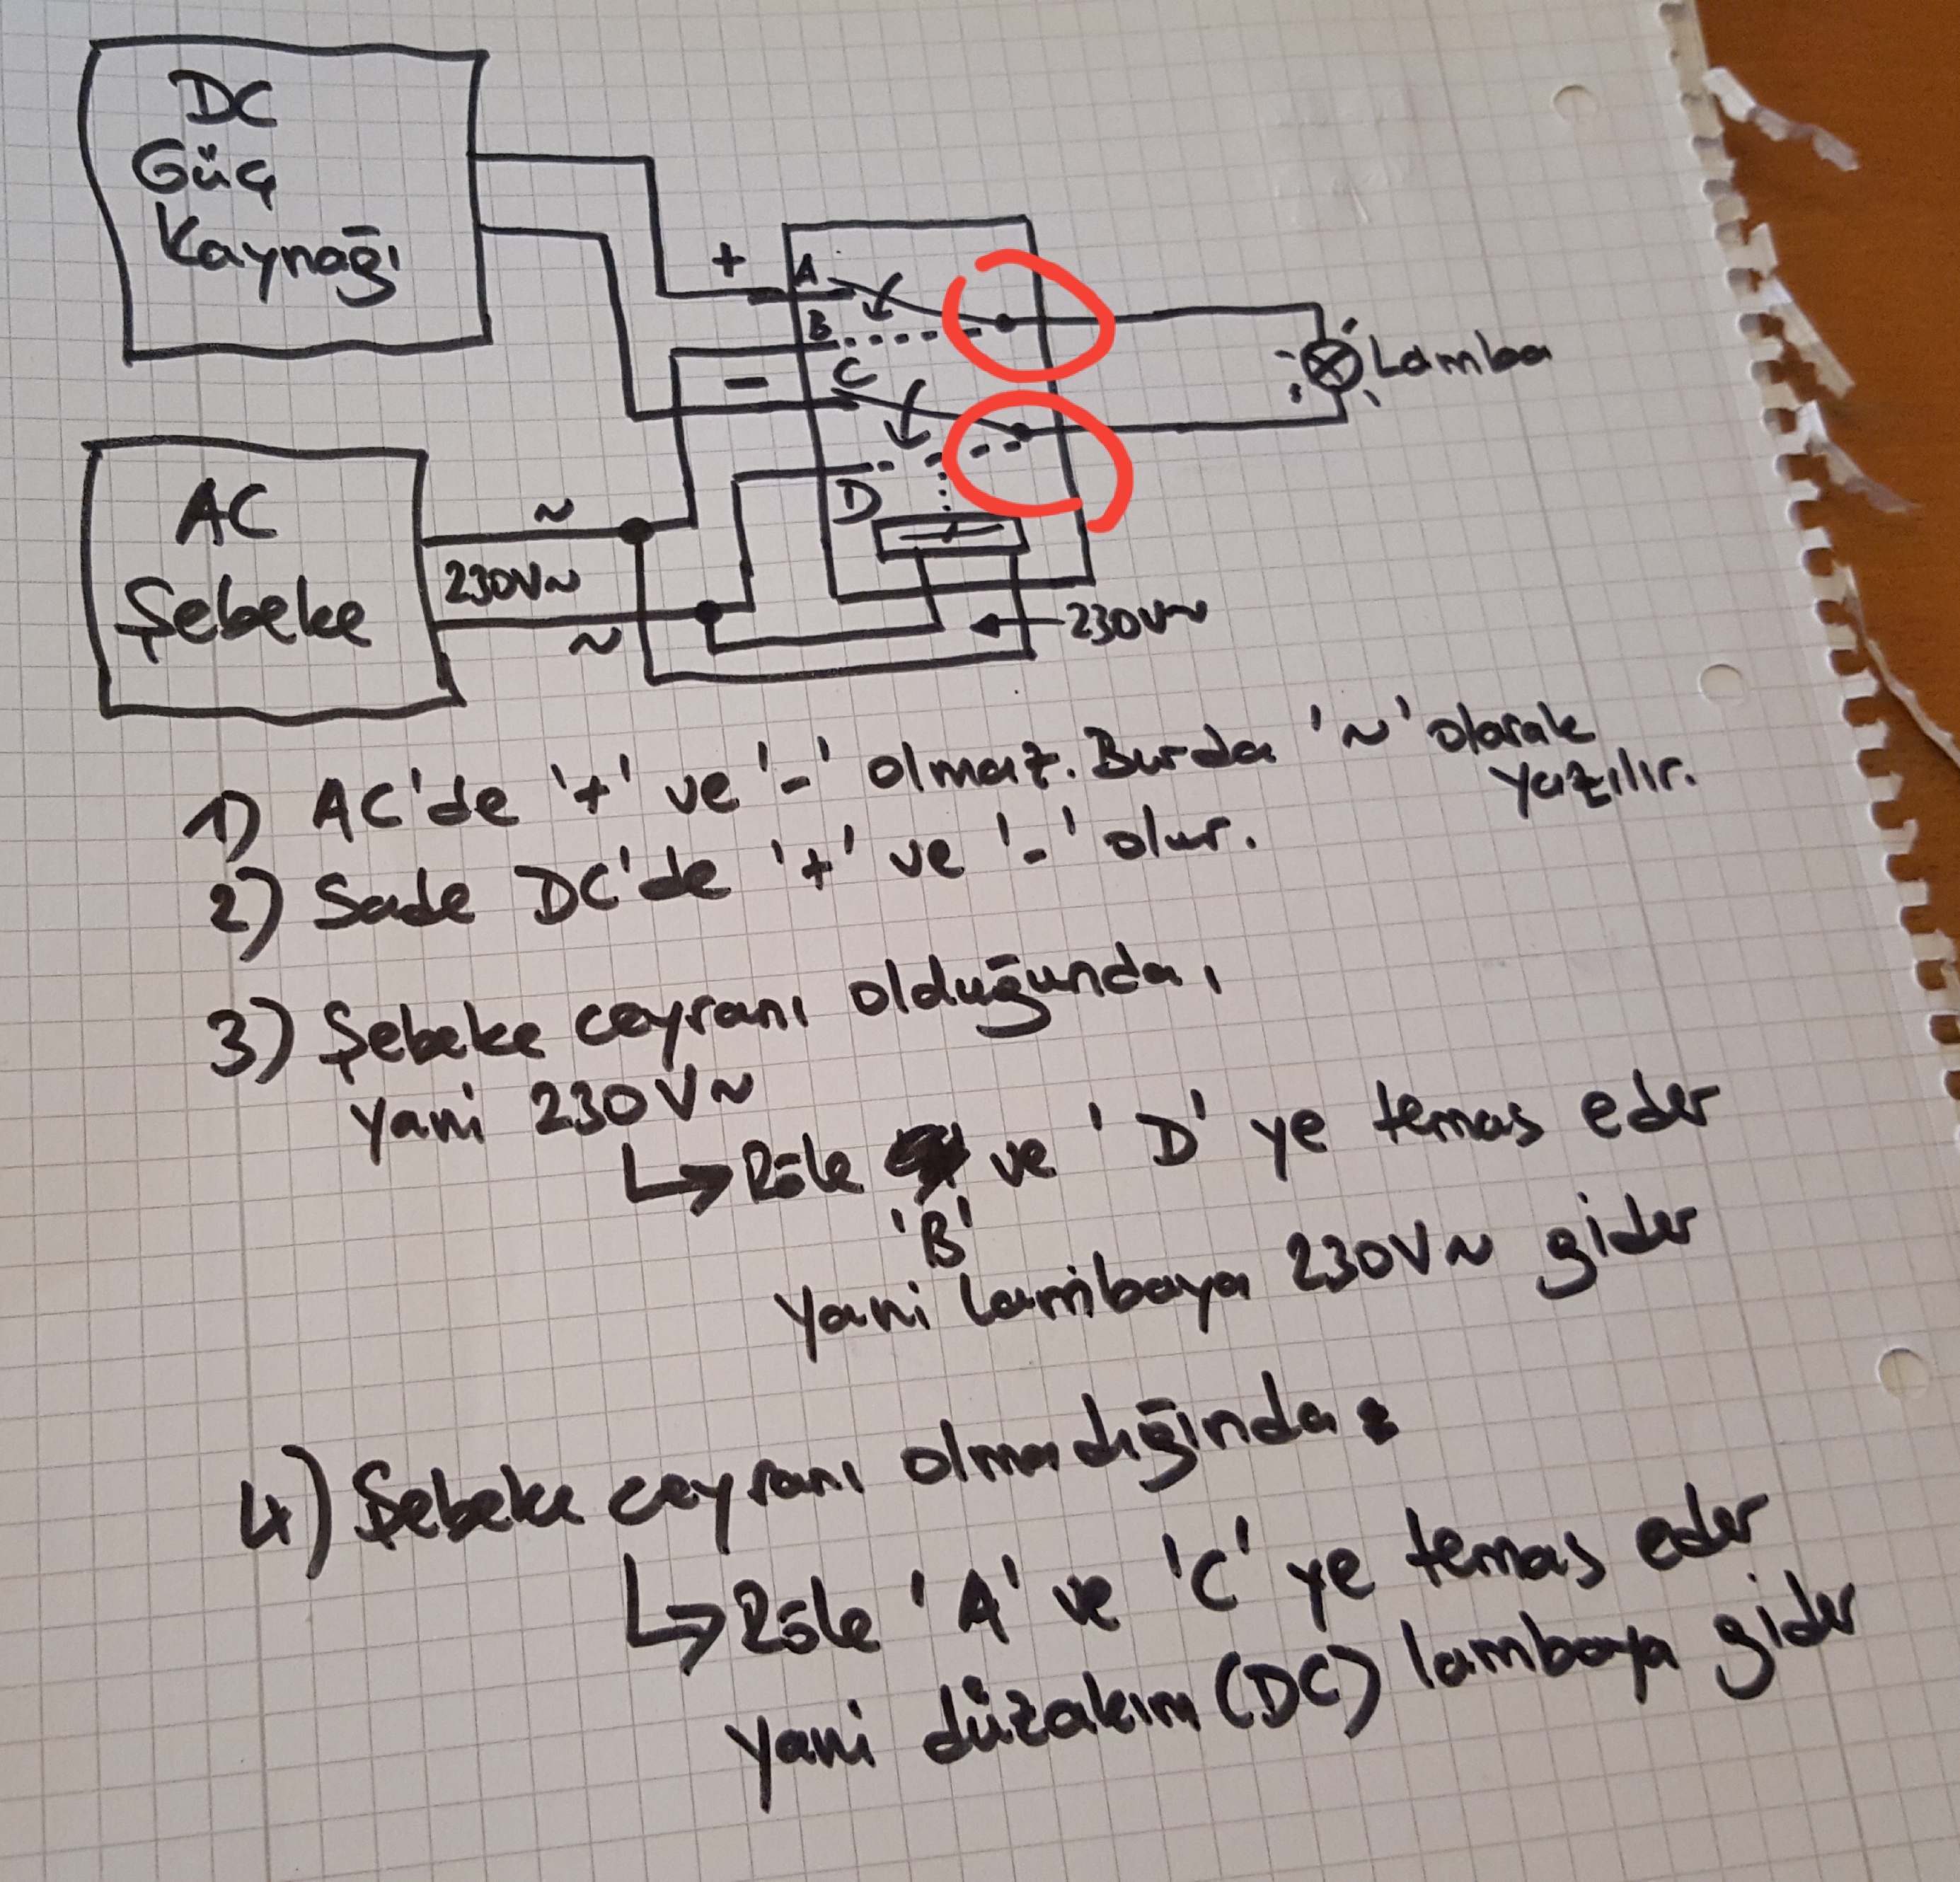 DC
Güç
Kaynağı
+
A
B
-
C
Lamba
D
AC
Şebeke
~
230V~
~
230V~
1) AC'de '+' ve '-' olmaz. Burda '~' olarak
yazılır.
2) Sade DC'de '+' ve '-' olur.
3) Şebeke ceyranı olduğunda,
yani 230V~
↳ Röle ve 'D' ye temas eder
'B'
yani lambaya 230V~ gider
4) Şebeke ceyranı olmadığında:
↳ Röle 'A' ve 'C' ye temas eder
yani düzakım (DC) lambaya gider